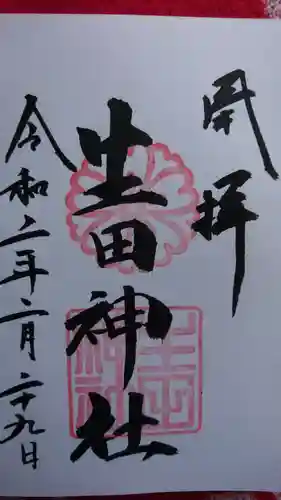 開拝
生田神社
令和二年二月二十九日
生田神社